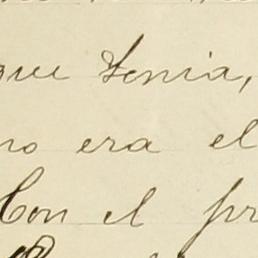 que tenia,
no era el
Con el pr